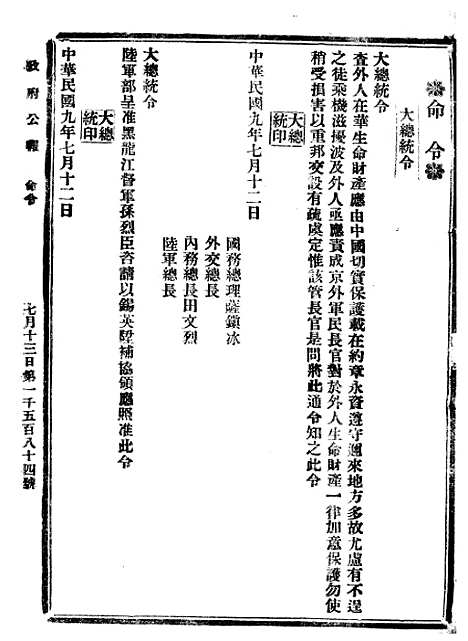 命令
大總統令
大總統令
查外人在華生命財產應由中國切實保護載在約章永資遵守邇來地方多故尤慮有不逞
之徒乘機滋擾波及外人亟應責成京外軍民長官對於外人生命財產一律加意保護勿使
稍受損害以重邦交設有疏虞定惟該管長官是問將此通令知之此令
大總
統印
中華民國九年七月十二日
國務總理薩鎮冰
外交總長
內務總長田文烈
陸軍總長
大總統令
陸軍部呈准黑龍江督軍孫烈臣咨請以錫英陞補協領應照准此令
大總
統印
中華民國九年七月十二日
政府公報 命令 七月十三日第一千五百八十四號